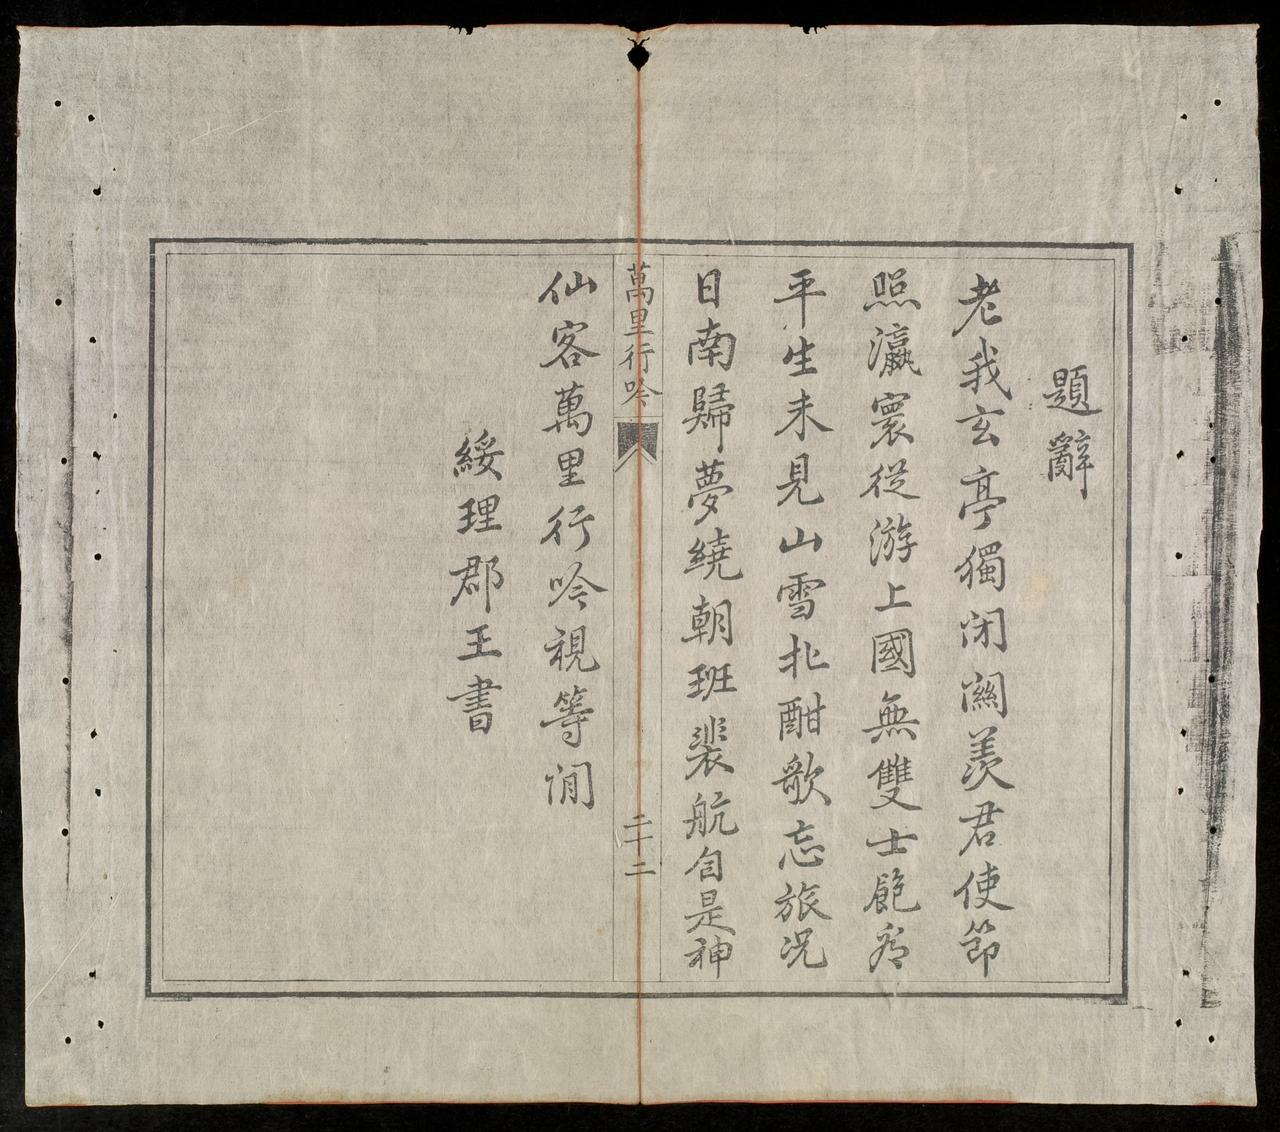 題辭
老我玄亭獨闭闗羨君使節
照瀛寰從游上國無雙士飽看
平生未見山雪北酣歌忘旅况
日南歸夢繞朝班裴航自是神
萬里行吟
二十二
仙客萬里行吟視等閒
綏理郡王書